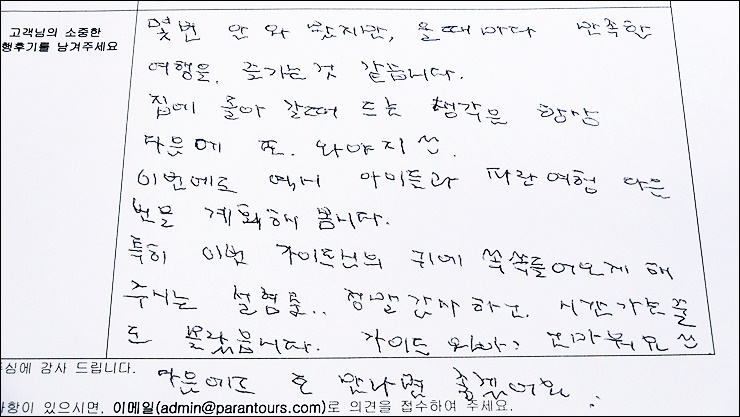 고객님의 소중한
행후기를 남겨주세요
몇번 안 와 봤지만, 올때 마다 만족한
여행을, 즐기는것 같습니다.
집에 돌아 갈때 드는 생각은 항상
다음에 또. 와야지 ^^.
이번에도 역시 아이들과 파란여행 다음
번을 계획해 봅니다.
특히 이번 가이드님의 귀에 쏙쏙들어오게 해
주시는 설명.. 정말 감사 하고. 시간 가는줄
도 몰랐습니다. 가이드 고마워요 ^^
다음에도 또 만나면 좋겠어요.
심에 감사 드립니다.
사항이 있으시면, 이메일(admin@parantours.com)로 의견을 접수하여 주세요.